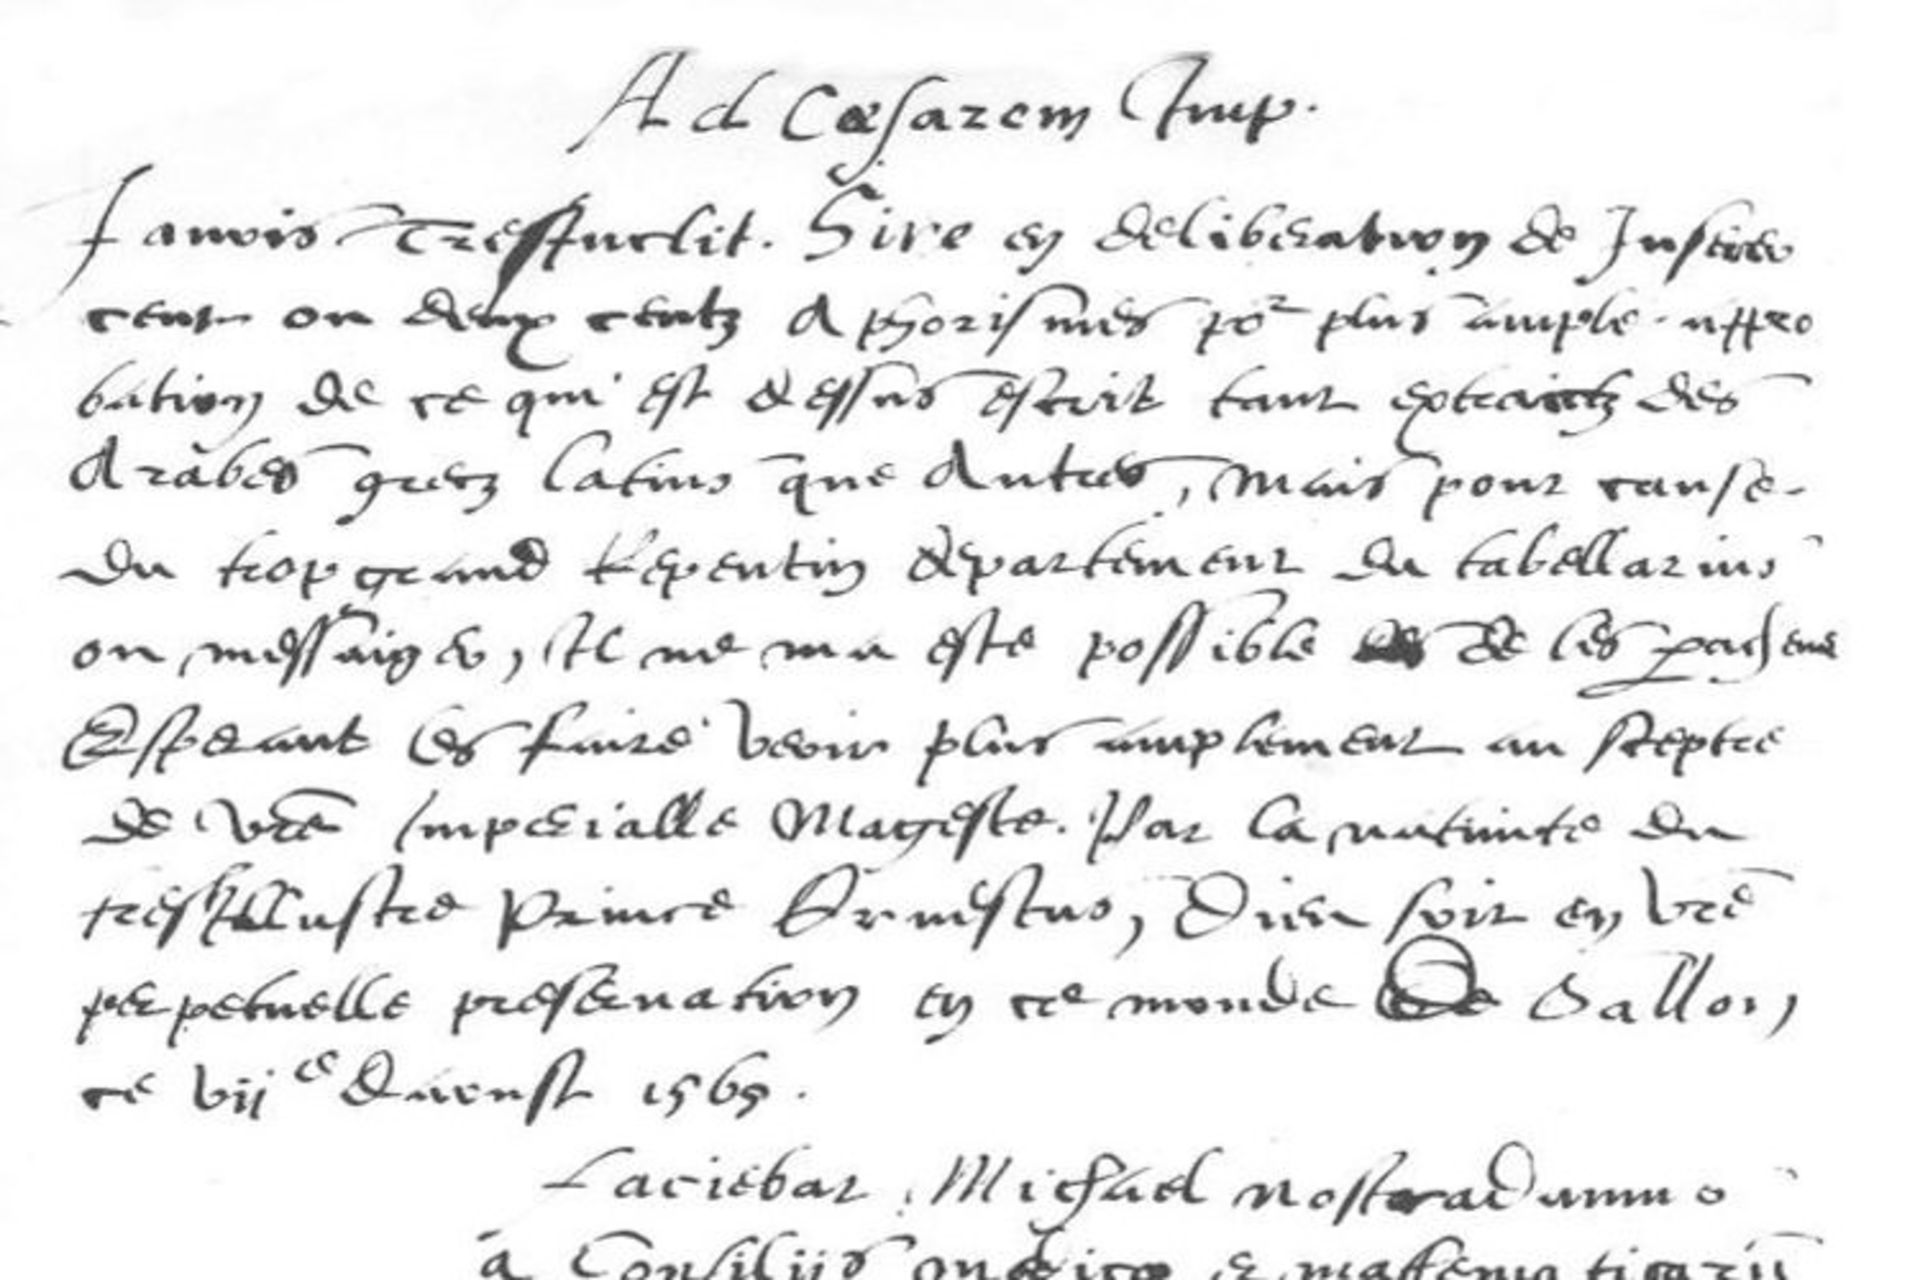 Ad Cæsarem Imp.
J'avois Tresinclit. Sire en deliberation de Inserer
cent ou deux centz Aphorismes po^r plus ample appro
bation de ce qui est dessus escrit tant extraictz des
Arabes grecz latins que Autres, Mais pour cause
du trop grand Repentin departement du tabellarius
ou messaiger, Il ne ma este possible de les
Esperant les faire veoir plus amplement au sceptre
de vre Imperialle Mageste. Par la nativite du
tresillustre Prince Ernestus, Dieu soit en vre
perpetuelle preservation en ce monde De Sallon,
ce vij^e D'aoust 1565.
Faciebat Michael nostradamus
a Consiliis medico &